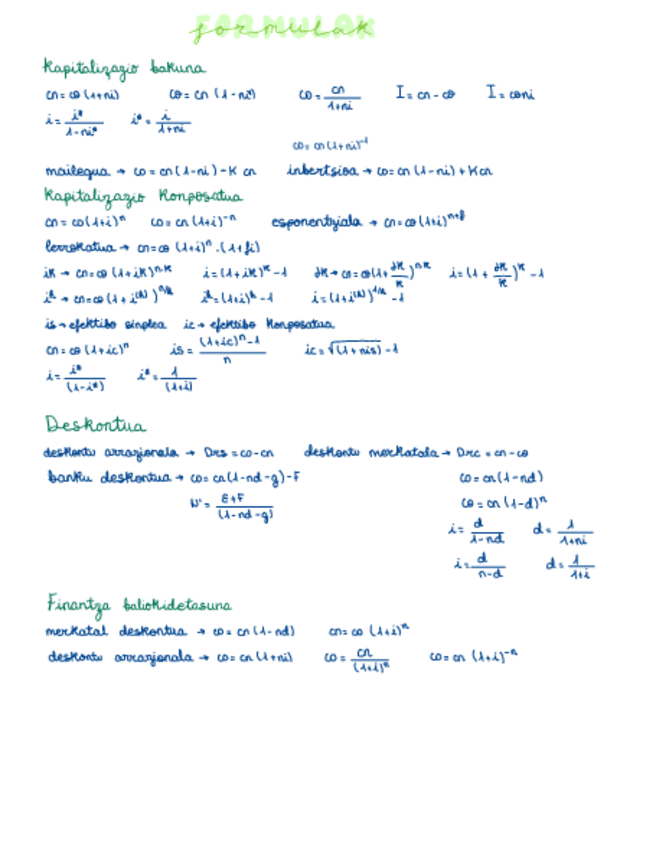 FORMULAK
formulak
Kapitalizazio bakuna
cn = co (1+ni)   co = cn (1-ni*)   co = cn/(1+ni)   I = cn - co   I = coni
i = i*/(1-ni*)   i* = i/(1+ni)
co = cn(1+ni)⁻¹
mailegua → co = cn(1-ni) - K cn   inbertsioa → co = cn (1-ni) + Kcn
Kapitalizazio Konposatua
cn = co(1+i)ⁿ   co = cn(1+i)⁻ⁿ   esponentziala → cn = co(1+i)ⁿ⁺ᶠ
lerrokatua → cn = co (1+i)ⁿ · (1+fi)
iK → cn = co (1+iK)ⁿ·ᴷ   i = (1+iK)ᴷ - 1   JK → cn = co(1+JK/K)ⁿᴷ   i = (1+JK/K)ᴷ - 1
iʰ → cn = co(1+i⁽ʰ⁾)ⁿ/ʰ   iʰ = (1+i)ʰ - 1   i = (1+i⁽ʰ⁾)¹/ʰ - 1
is → efektibo sinplea   ic → efektibo Konposatua
cn = co (1+ic)ⁿ   is = ((1+ic)ⁿ - 1)/n   ic = √(1+nis) - 1
i = i*/(1-i*)   i* = 1/(1+i)
Deskontua
deskontu arrazionala → Drs = co - cn   deskontu merkatala → Drc = cn - co
banku deskontua → co = cn(1-nd-g) - F   co = cn(1-nd)
N' = (E+F)/(1-nd-g)   co = cn(1-d)ⁿ
i = d/(1-nd)   d = 1/(1+ni)
i = d/(n-d)   d = 1/(1+i)
Finantza baliokidetasuna
merkatal deskontua → co = cn(1-nd)   cn = co (1+i)ⁿ
deskontu arrazionala → co = cn(1+ni)   co = cn/(1+i)ⁿ   co = cn (1+i)⁻ⁿ